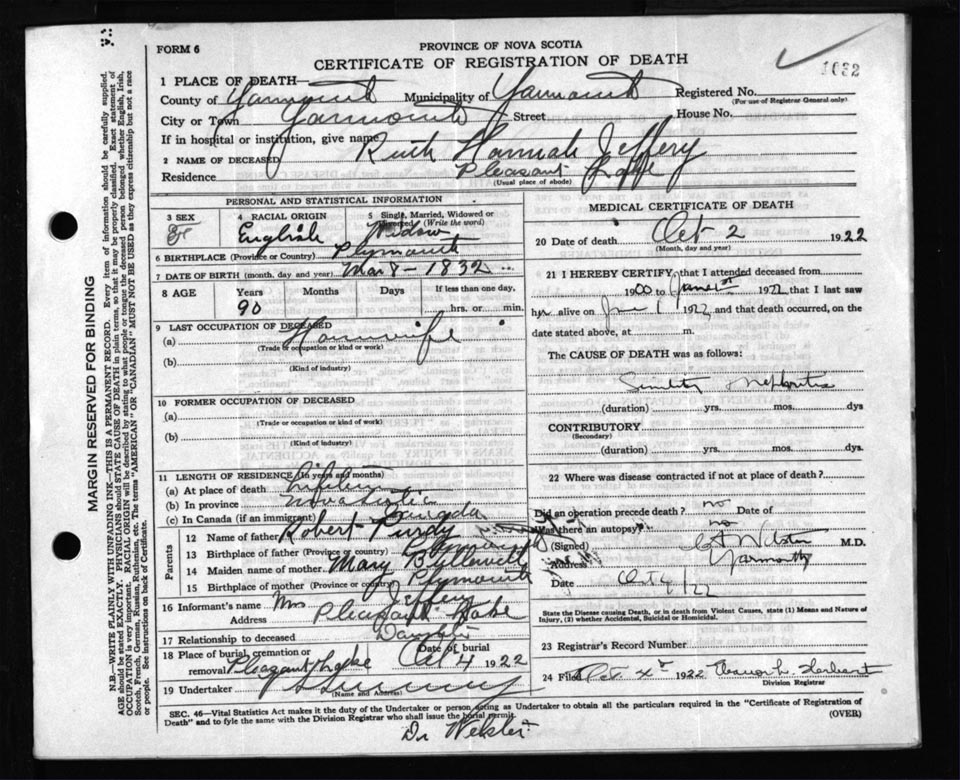 FORM 6
PROVINCE OF NOVA SCOTIA
CERTIFICATE OF REGISTRATION OF DEATH
1032
1 PLACE OF DEATH—
County of Yarmouth Municipality of Yarmouth Registered No.
(For use of Registrar General only)
City or Town Yarmouth Street House No.
If in hospital or institution, give name
2 NAME OF DECEASED Ruth Hannah Jeffery
Residence Pleasant Lake
(Usual place of abode)
PERSONAL AND STATISTICAL INFORMATION
3 SEX
4 RACIAL ORIGIN English
5 Single, Married, Widowed or Divorced (Write the word) Widow
6 BIRTHPLACE (Province or Country) Plymouth
7 DATE OF BIRTH (month, day and year) Mar 8 - 1832
8 AGE Years Months Days If less than one day,
90 hrs. or min.
9 LAST OCCUPATION OF DECEASED
(a) Housewife
(Trade or occupation or kind or work)
(b)
(Kind of industry)
10 FORMER OCCUPATION OF DECEASED
(a)
(Trade or occupation or kind of work)
(b)
(Kind of industry)
11 LENGTH OF RESIDENCE (in years and months)
(a) At place of death Lifetime
(b) In province Nova Scotia
(c) In Canada (if an immigrant) Canada
Parents
12 Name of father Robert Purdy
13 Birthplace of father (Province or country)
14 Maiden name of mother Mary
15 Birthplace of mother (Province or country) Plymouth
16 Informant's name Mrs Jeffery
Address Pleasant Lake
17 Relationship to deceased Daughter
18 Place of burial, cremation or removal Pleasant Lake Date of burial Oct 4 1922
19 Undertaker
(Name and Address)
MEDICAL CERTIFICATE OF DEATH
20 Date of death Oct 2 1922
(Month, day and year)
21 I HEREBY CERTIFY, that I attended deceased from
1900 to June 1st 1922 that I last saw
her alive on June 1 1922 and that death occurred, on the
date stated above, at m.
The CAUSE OF DEATH was as follows:
Nephritis
(duration) yrs. mos. dys
CONTRIBUTORY
(Secondary)
(duration) yrs. mos. dys.
22 Where was disease contracted if not at place of death?
Did an operation precede death? no Date of
Was there an autopsy? no
(Signed) Webster M.D.
Address Yarmouth
Date Oct 4/22
State the Disease causing Death, or in death from Violent Causes, state (1) Means and Nature of
Injury, (2) whether Accidental, Suicidal or Homicidal.
23 Registrar's Record Number
24 Filed Oct 4th 1922
Division Registrar
SEC. 46—Vital Statistics Act makes it the duty of the Undertaker or person acting as Undertaker to obtain all the particulars required in the "Certificate of Registration of
Death" and to fyle the same with the Division Registrar who shall issue the burial permit.
(OVER)
Dr Webster
MARGIN RESERVED FOR BINDING
N.B.—WRITE PLAINLY WITH UNFADING INK—THIS IS A PERMANENT RECORD. Every item of information should be carefully supplied.
AGE should be stated EXACTLY. PHYSICIANS should STATE CAUSE OF DEATH in plain terms, so that it may be properly classified. Exact statement of
OCCUPATION is very important. RACIAL ORIGIN will be described by stating to what people or tongue the deceased person belonged whether English, Irish,
Scotch, French, German, Russian, Ruthenian, etc. The terms "AMERICAN" OR "CANADIAN" MUST NOT BE USED as they express citizenship but not a race
or people. See instructions on back of Certificate.